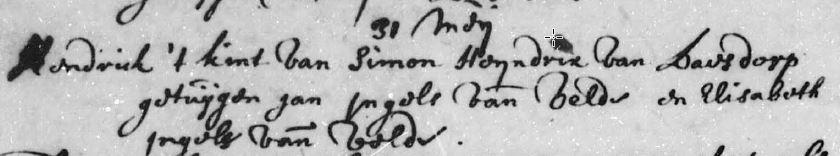 31 Meij
Hendrick 't kint van Simon Heijndrix van Baesdorp
getuijgen jan jngels van Velde en Elisabeth
jngels van Velde.